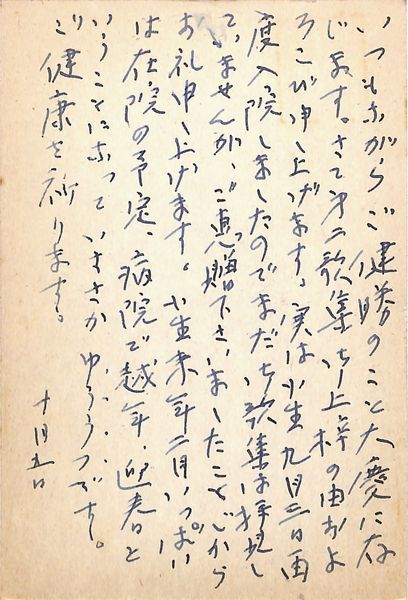 いつもながらご健勝のこと大慶に存
じます。さて第二歌集御上梓の由およ
ろこび申し上げます、実は小生九月三日再
度入院しましたのでまだ御歌集は拝見し
ていませんが、ご恵贈下さいましたことから
お礼申し上げます。小生来年二月いっぱい
は在院の予定、病院で越年、迎春と
いうことになっていささかゆううつです。
ご健康を祈ります。
十月五日